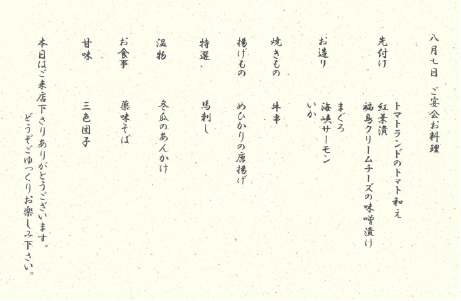 八月七日　ご宴会お料理
先付け　トマトランドのトマト和え
紅葉漬
福島クリームチーズの味噌漬け
お造り　まぐろ
海峡サーモン
いか
焼きもの　牛串
揚げもの　めひかりの唐揚げ
特選　馬刺し
温物　冬瓜のあんかけ
お食事　薬味そば
甘味　三色団子
本日はご来店下さりありがとうございます。
どうぞごゆっくりお楽しみ下さい。